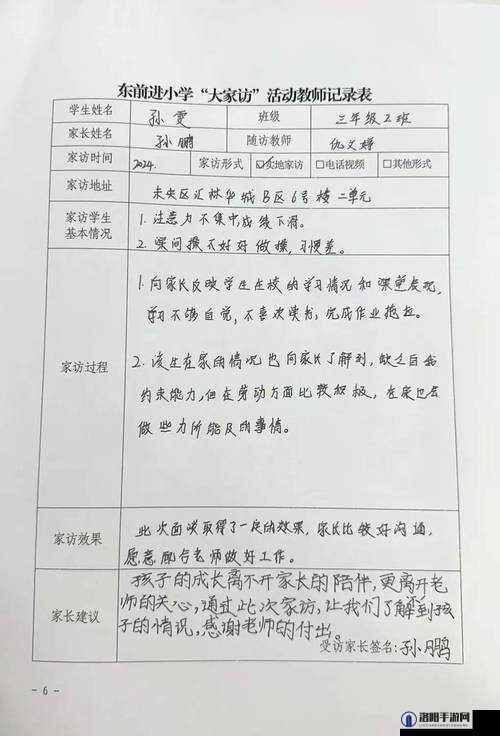 东前进小学“大家访”活动教师记录表
学生姓名 孙雯 班级 三年级2班
家长姓名 孙鹏 随访教师 仇文婷
家访时间 2024. 家访形式 ☑实地家访 □电话视频 □其他形式
家访地址 未央区汇林华城B区6号楼二单元
家访学生基本情况
1. 注意力不集中,成绩下滑。
2. 课间操不好好做操,习惯差。
家访过程
1. 向家长反映学生在校的学习情况和课堂表现,
学习不够自觉,不喜欢读书,完成作业拖拉。
2. 该生在家的情况也向家长了解到,缺乏自我
约束能力,但在劳动方面比较积极,在家也会
做些力所能及的事情。
家访效果
此次面谈取得了一定的效果,家长比较好沟通,
愿意配与老师做好工作。
家长建议
孩子的成长离不开家长的陪伴,更离开老
师的关心,通过此次家访,让我们了解到孩
子的情况,感谢老师的付出。
受访家长签名:孙鹏
- 6 -
洛阳手游网